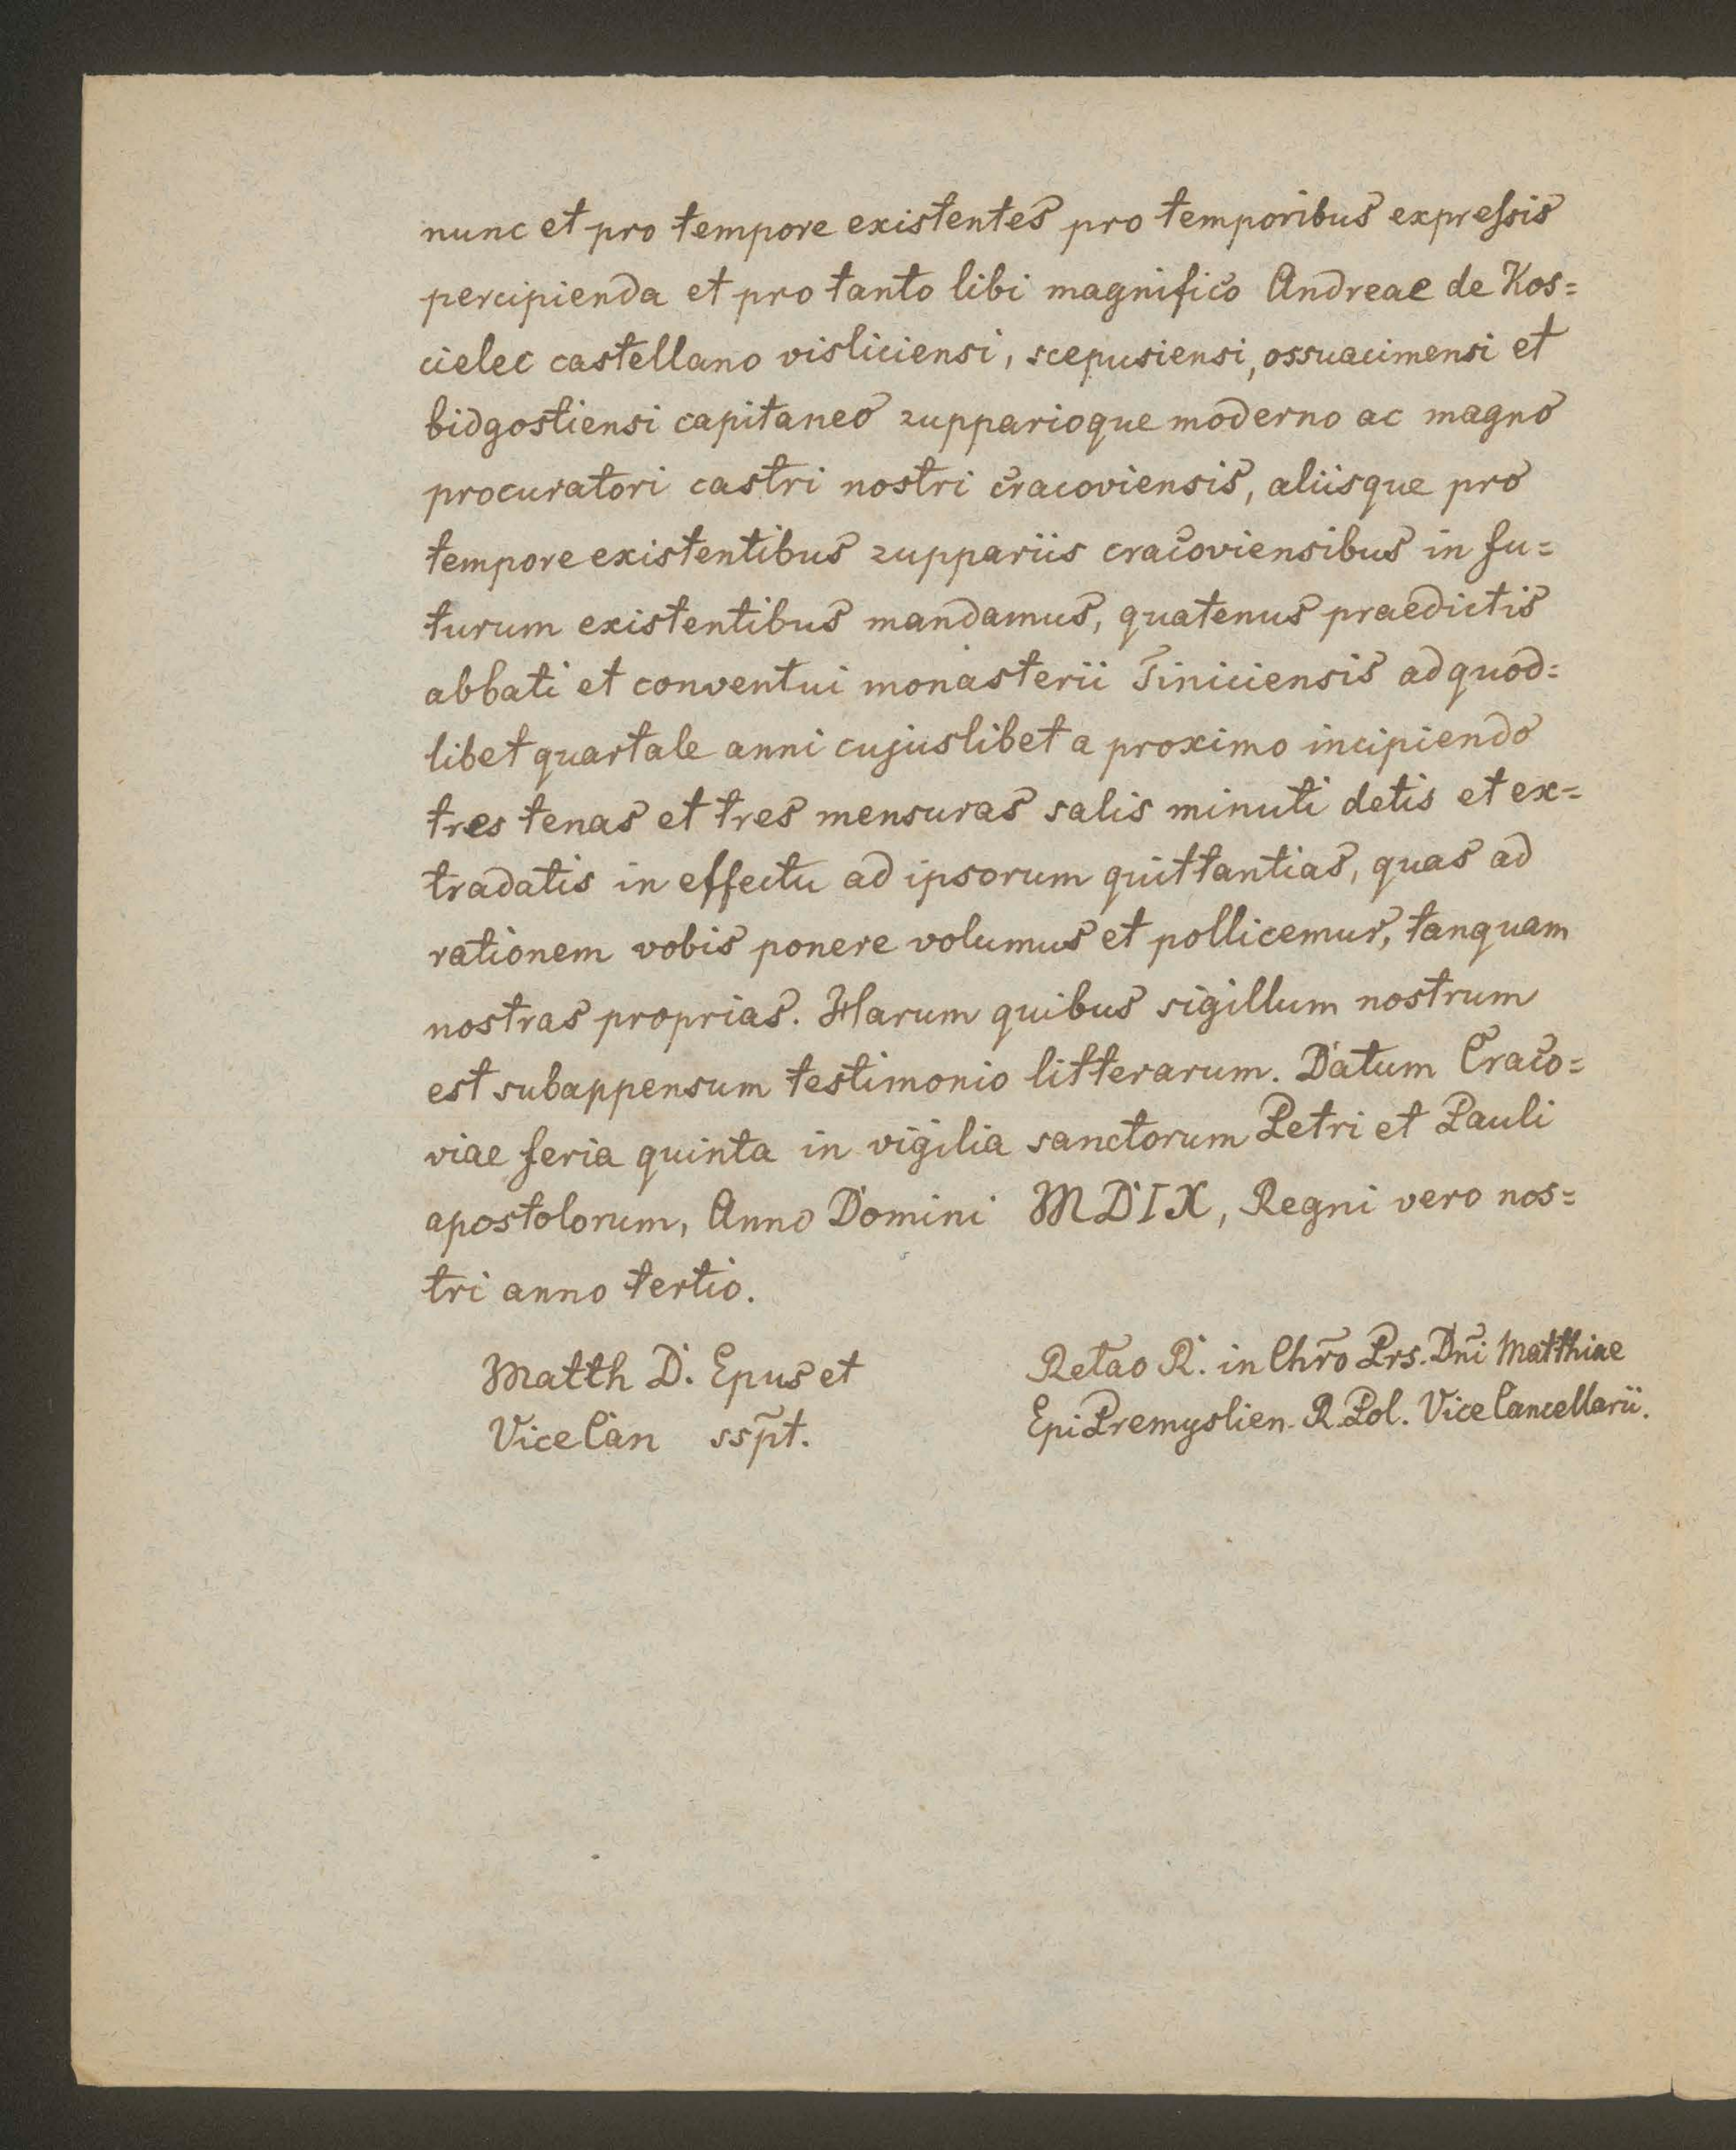 nunc et pro tempore existentes pro temporibus expreſsis
percipienda et pro tanto libi magnifico Andreae de Kos=
cielec castellano visliciensi, scepusiensi, ossuacimensi et
bidgostiensi capitaneo zupparioque moderno ac magno
procuratori castri nostri cracoviensis, aliisque pro
tempore existentibus zuppariis cracoviensibus in fu=
turum existentibus mandamus, quatenus praedictis
abbati et conventui monasterii Tiniciensis ad quod=
libet quartale anni cujuslibet a proximo incipiendo
tres tenas et tres mensuras salis minuti detis et ex=
tradatis in effectu ad ipsorum quittantias, quas ad
rationem vobis ponere volumus et pollicemur, tanquam
nostras proprias. Harum quibus sigillum nostrum
est subappensum testimonio litterarum. Datum Craco=
viae feria quinta in vigilia sanctorum Petri et Pauli
apostolorum, Anno Domini MDIX, Regni vero nos=
tri anno tertio.
Matth D. Epus et
Vice Can ssp̃t.
Retao R. in Chr̃o Prs. Dñi Matthiae
Epi Premyslien. R. Pol. Vice Cancellarii.